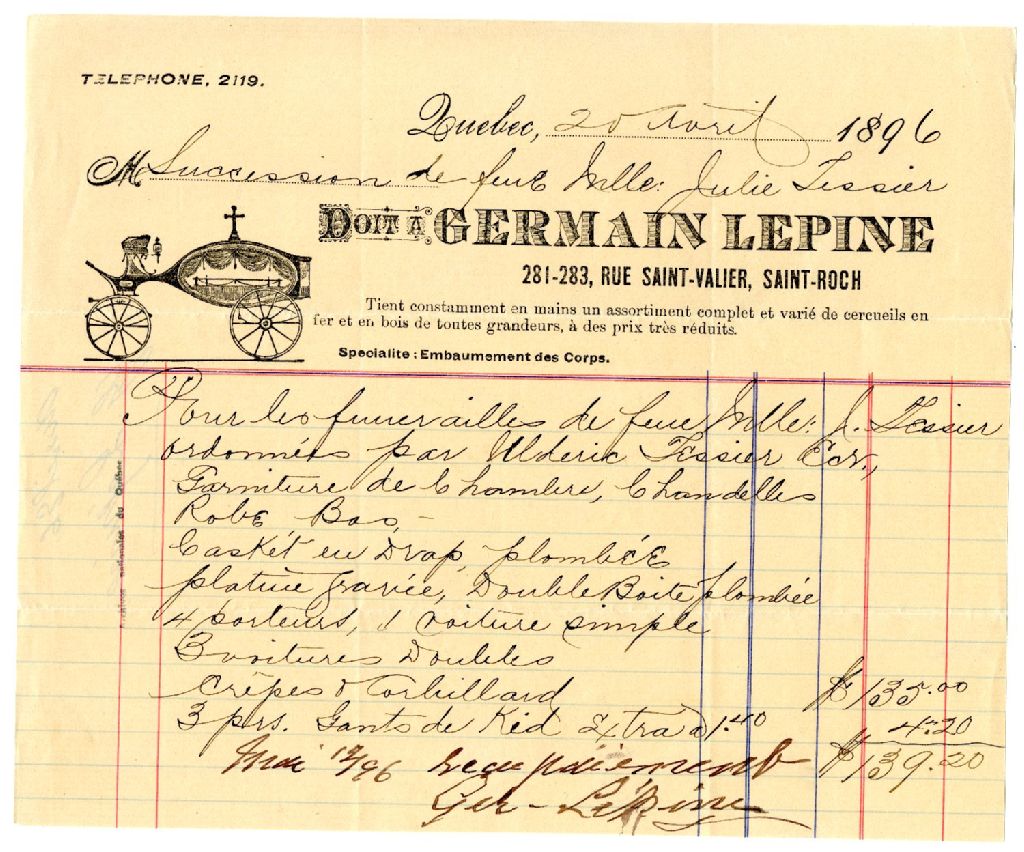 TELEPHONE, 2119.
Quebec, 20 Avril 1896
M Succession de feue Mlle: Julie Tessier
DOIT A GERMAIN LEPINE
281-283, RUE SAINT-VALIER, SAINT-ROCH
Tient constamment en mains un assortiment complet et varié de cercueils en
fer et en bois de toutes grandeurs, à des prix très réduits.
Specialite : Embaumement des Corps.
Pour les funerailles de feue Mlle: J. Tessier
ordonnées par Ulderic Tessier Ecr.,
Garniture de Chambre, Chandelles
Robe Bas, -
Caskét en Drap, plombée
platine gravée, Double Boite plombée
4 porteurs, 1 voiture simple
3 voitures Doubles
Crêpes & Corbillard $135.00
3 prs. Gants de Kid Extra @ 1.40 4.20
$139.20
Mai 12/96 recu paiement
Ger - Lépine
Archives nationales du Québec